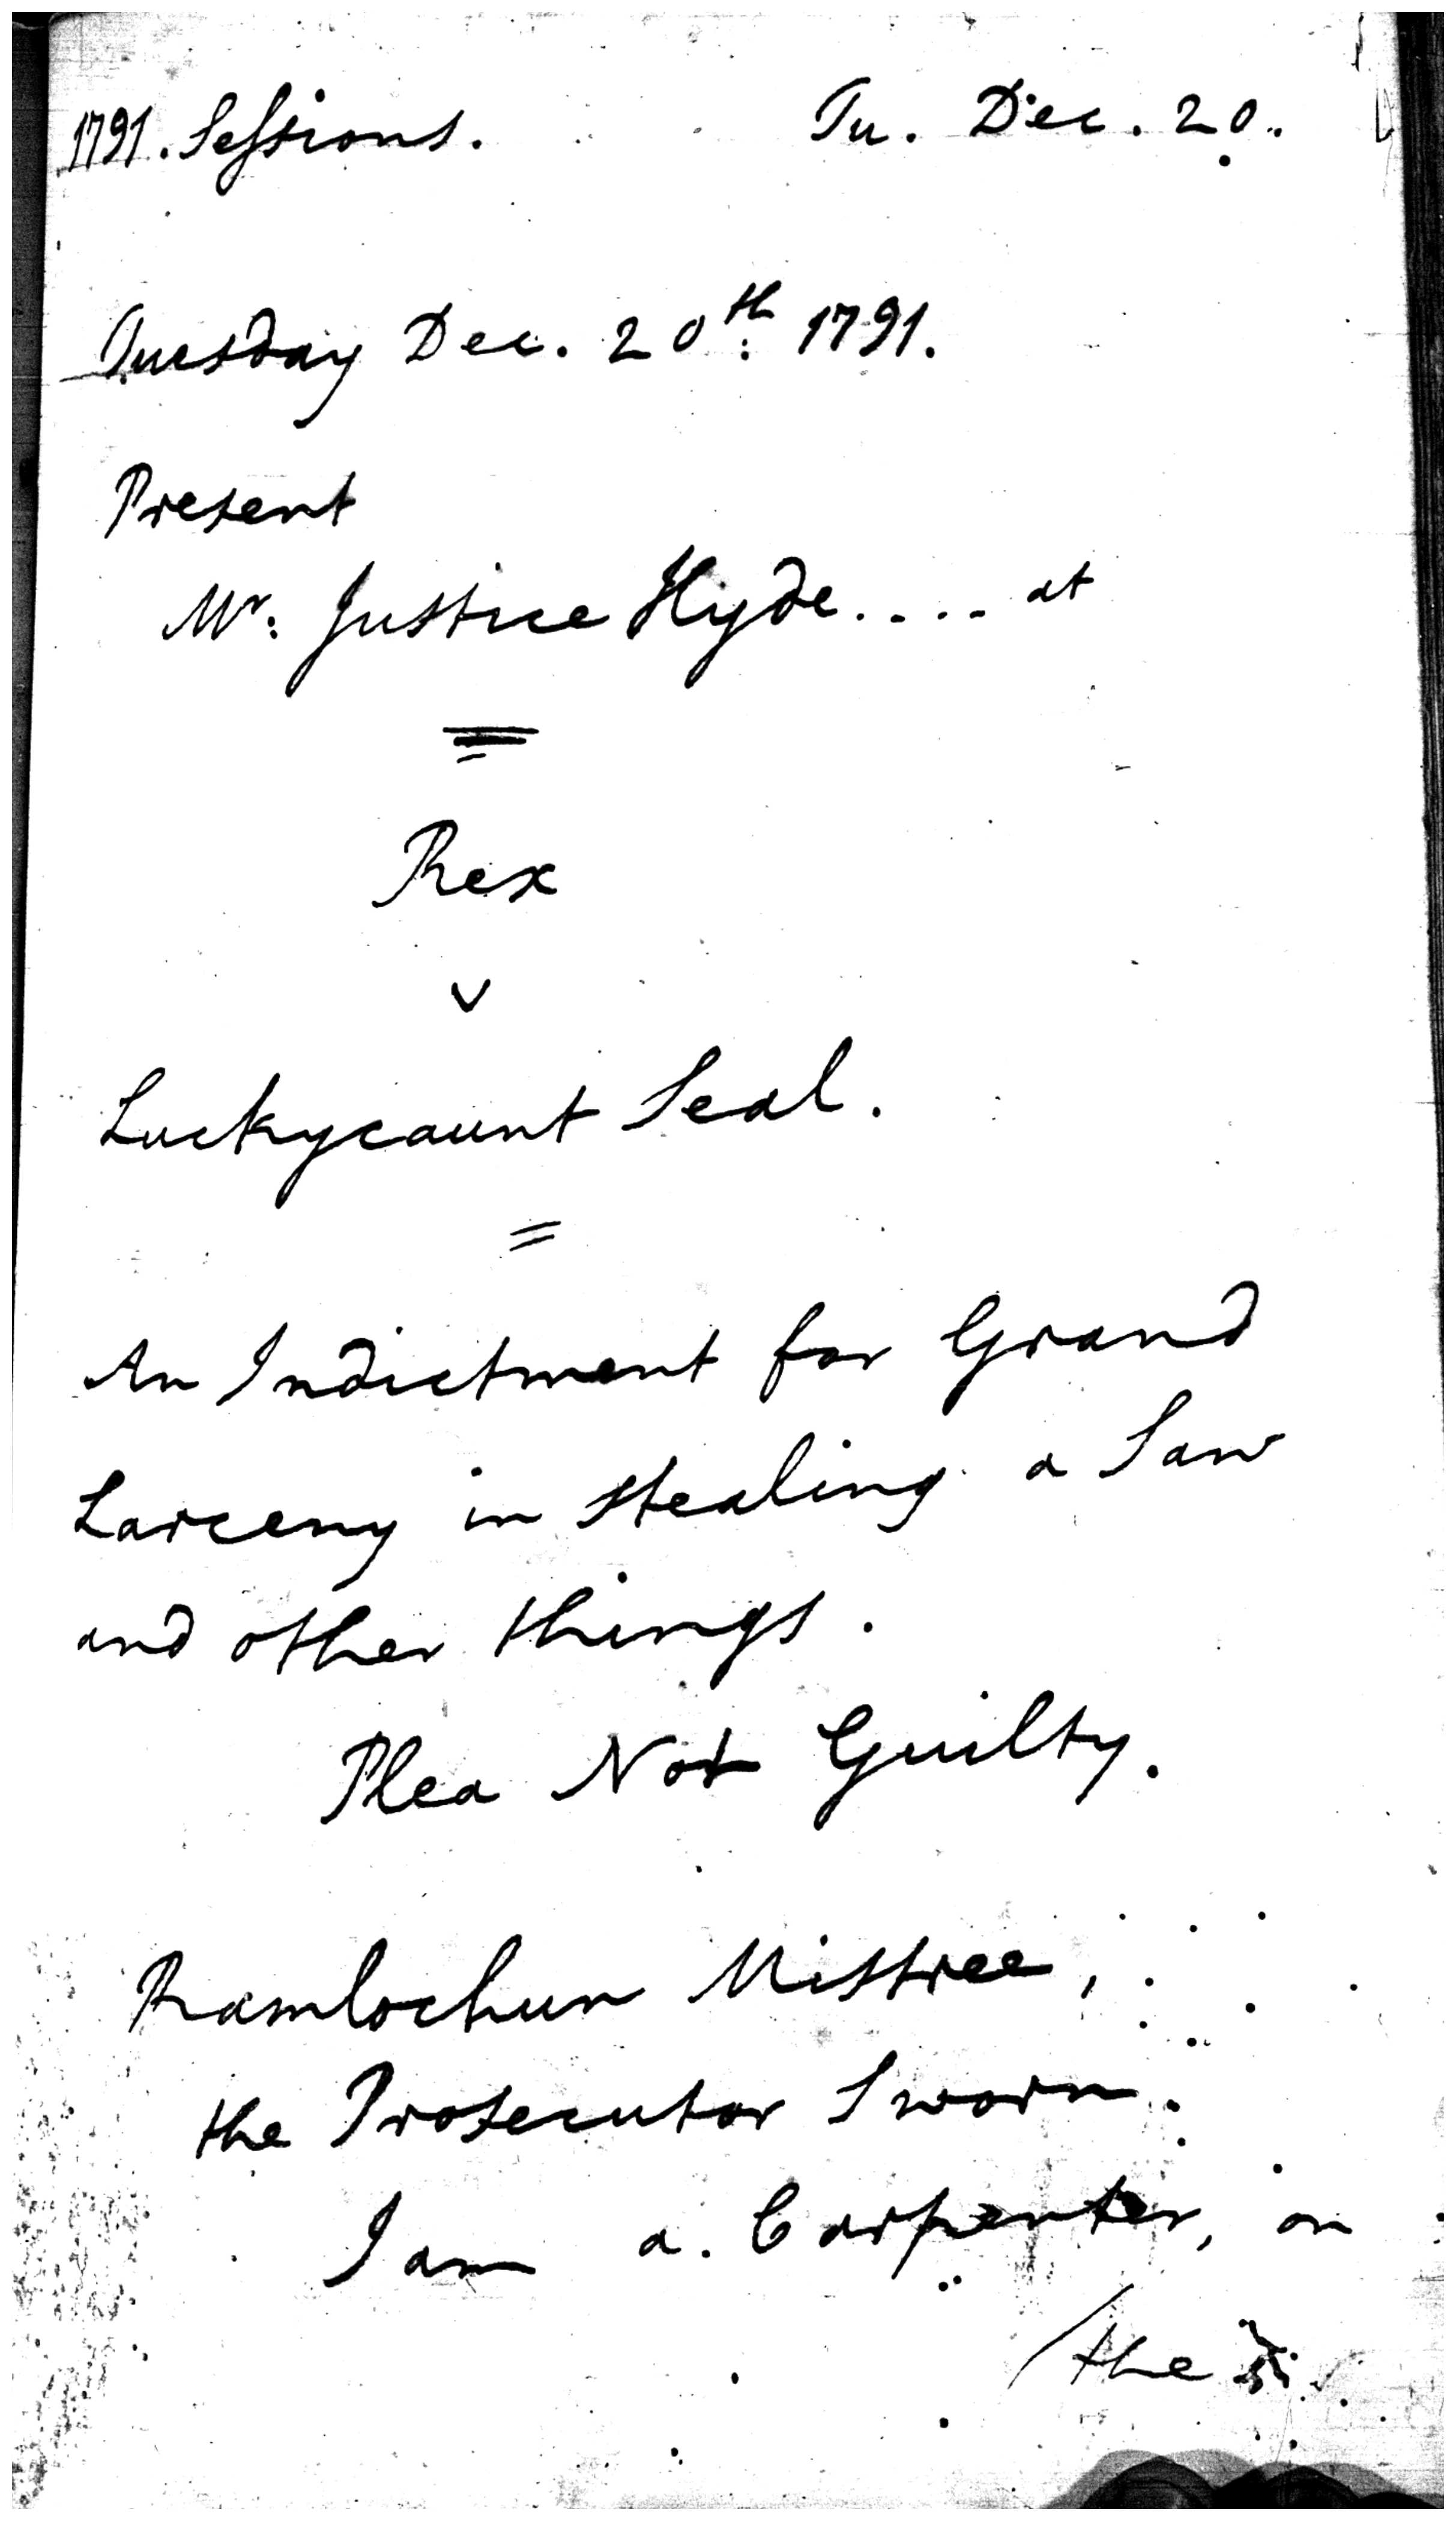 1791. Sessions. Tu. Dec. 20.
Tuesday Dec. 20th. 1791.
Present
Mr. Justice Hyde.... at
Rex
v
Luckycaunt Seal.
An Indictment for Grand
Larceny in Stealing a Saw
and other things.
Plea Not Guilty.
Ramlochun Mistree,
the Prosecutor Sworn.
I am a Carpenter, on
/the